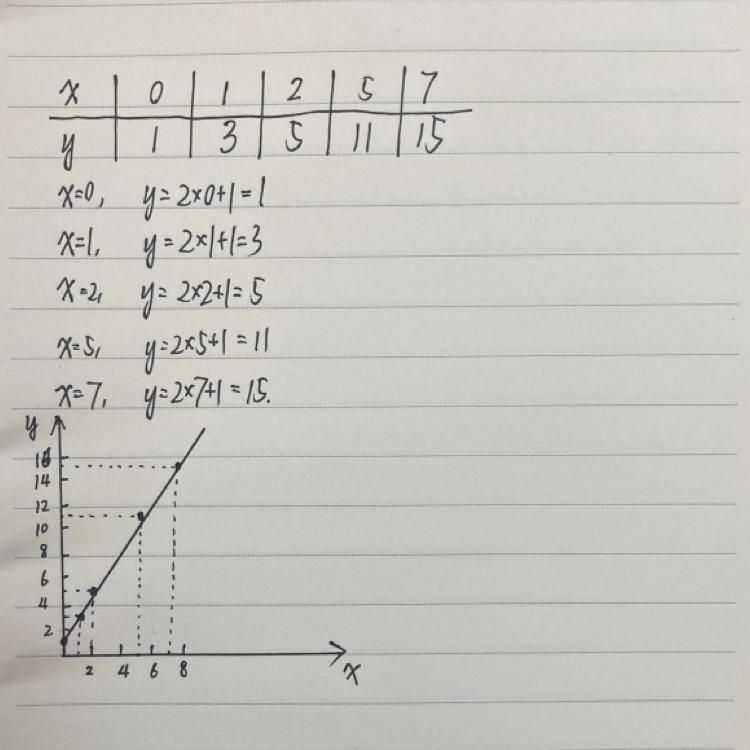 x 0 1 2 5 7
y 1 3 5 11 15
x=0, y=2×0+1=1
x=1, y=2×1+1=3
x=2, y=2×2+1=5
x=5, y=2×5+1=11
x=7, y=2×7+1=15.
y
16
14
12
10
8
6
4
2
2 4 6 8
x